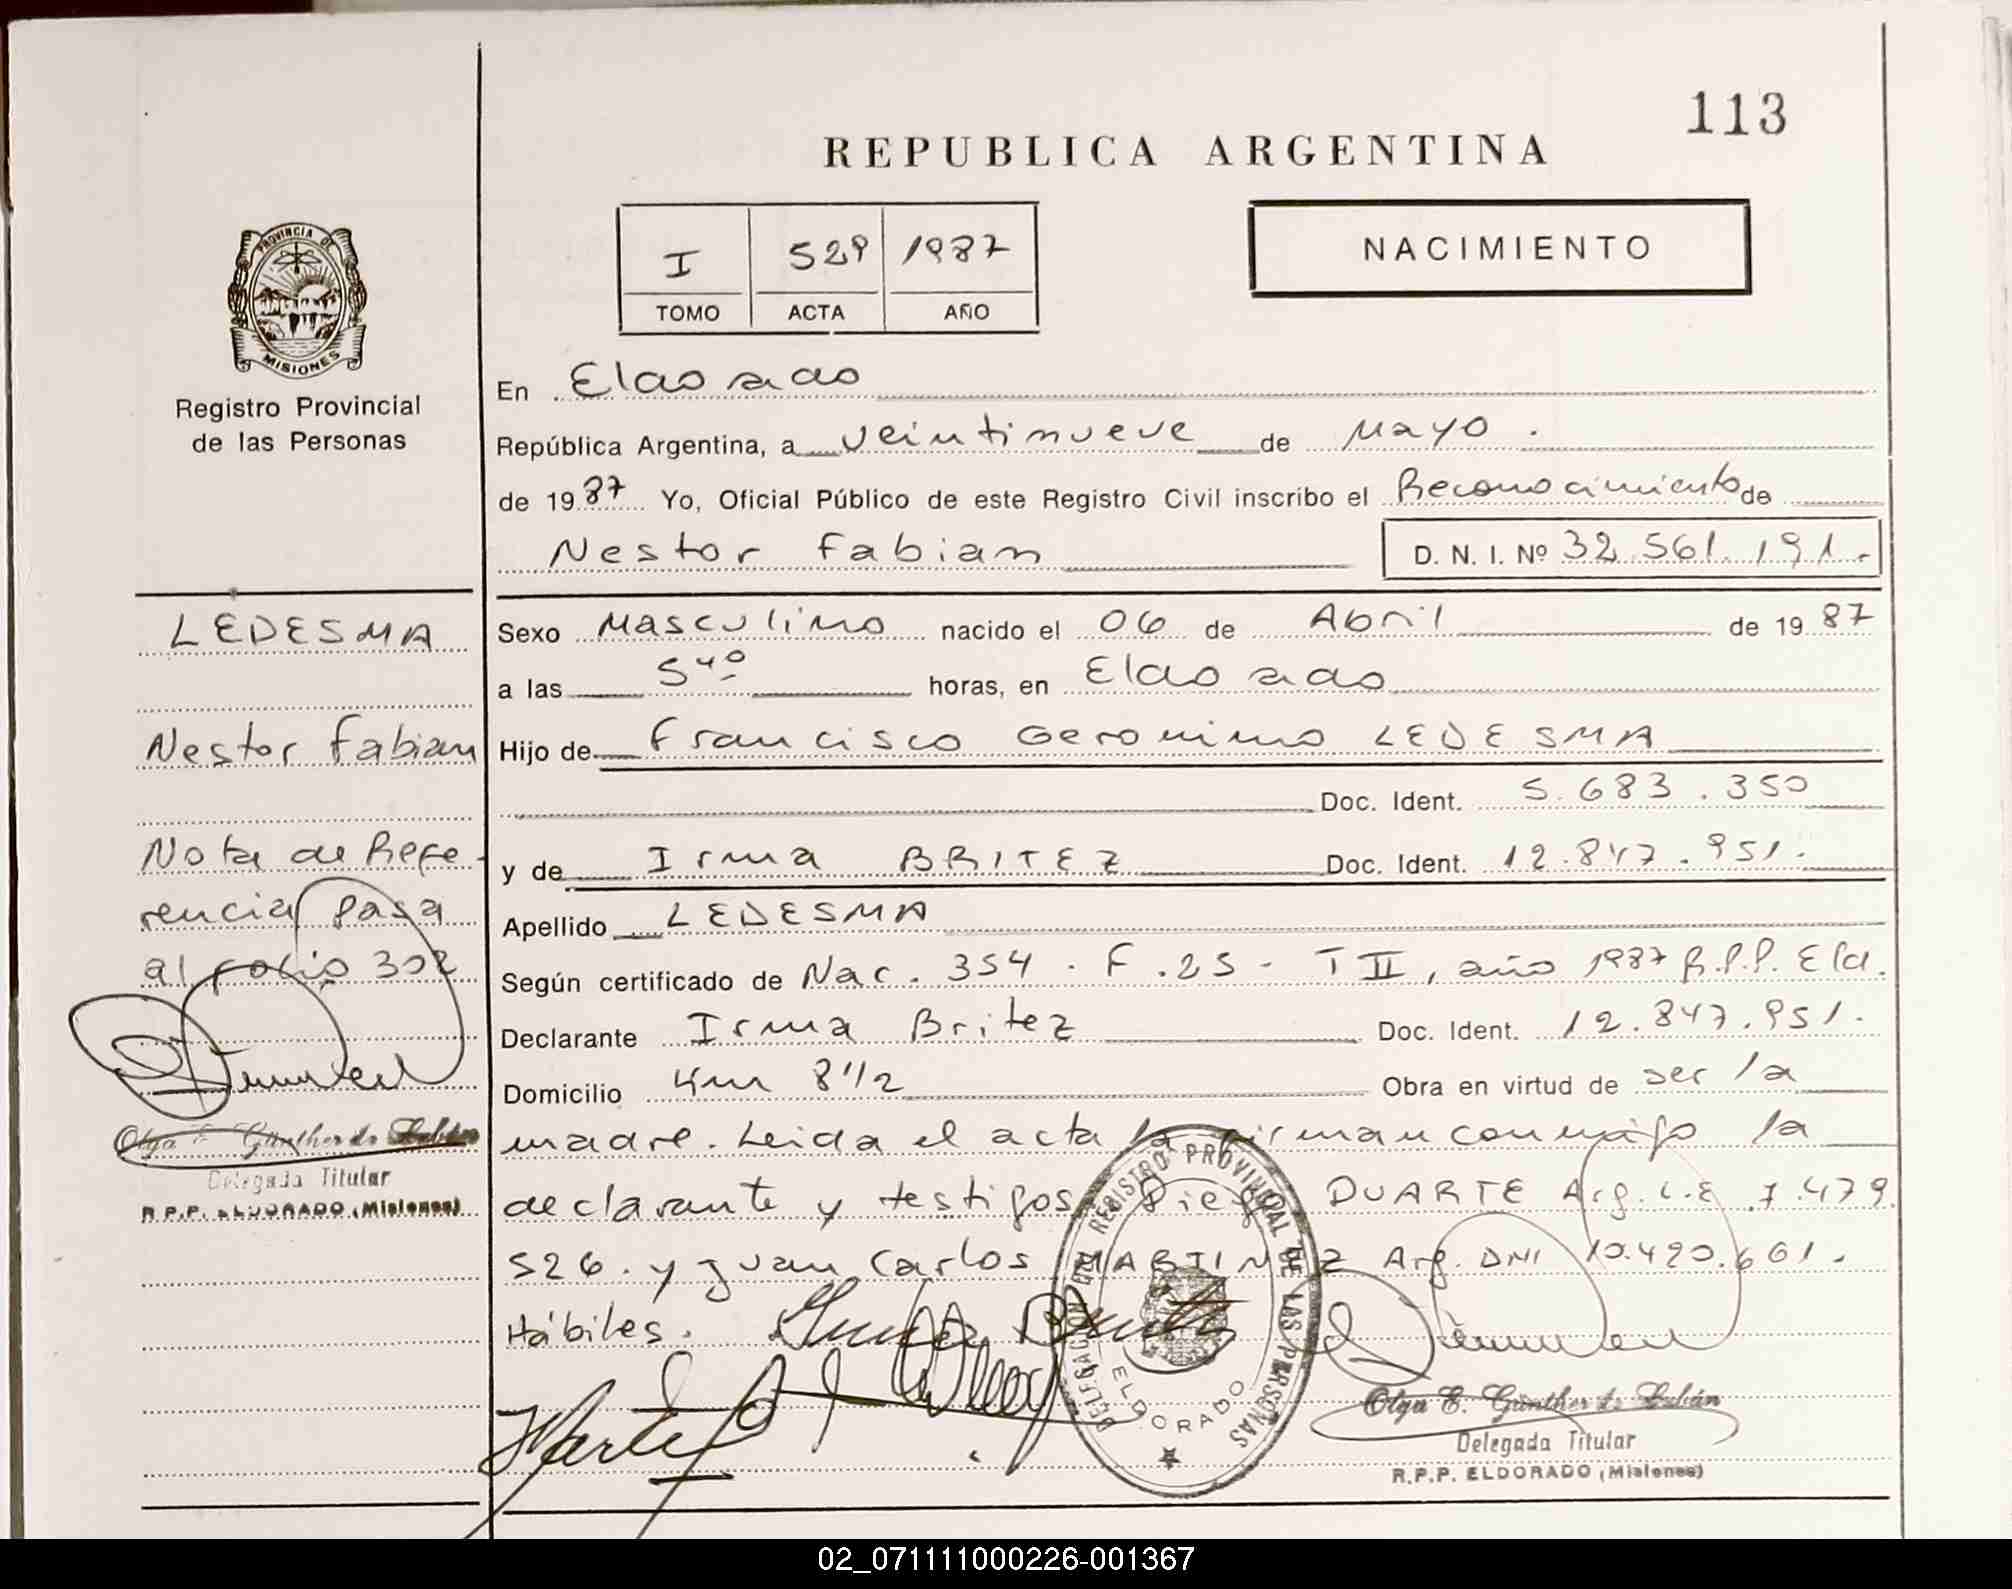 113
REPUBLICA ARGENTINA
I 529 1987
TOMO ACTA AÑO
NACIMIENTO
PROVINCIA DE
MISIONES
Registro Provincial
de las Personas
En Eldorado
República Argentina, a veintinueve de Mayo.
de 1987 Yo, Oficial Público de este Registro Civil inscribo el Reconocimiento de
Nestor Fabian D. N. I. Nº 32.561.191.-
LEDESMA
Nestor Fabian
Nota de Refe-
rencia pasa
al folio 302
Olga E. Günther de Lubán
Delegada Titular
R.P.P. ELDORADO (Misiones)
Sexo Masculino nacido el 06 de Abril de 1987
a las 5 40 horas, en Eldorado
Hijo de Francisco Geronimo LEDESMA
Doc. Ident. 5.683.350
y de Irma BRITEZ Doc. Ident. 12.847.951.
Apellido LEDESMA
Según certificado de Nac. 354. F.25- T II, año 1987 R.P.P. Eld.
Declarante Irma Britez Doc. Ident. 12.847.951.
Domicilio Km 8 1/2 Obra en virtud de ser la
madre. Leida el acta la firman conmigo la
declarante y testigos Diego DUARTE Arg. L.E 7.479.
526. y Juan Carlos MARTINEZ Arg. DNI 10.420.661.
Hábiles.
DELEGACION DEL REGISTRO PROVINCIAL DE LAS PERSONAS
ELDORADO
Olga E. Günther de Lubán
Delegada Titular
R.P.P. ELDORADO (Misiones)
02_071111000226-001367